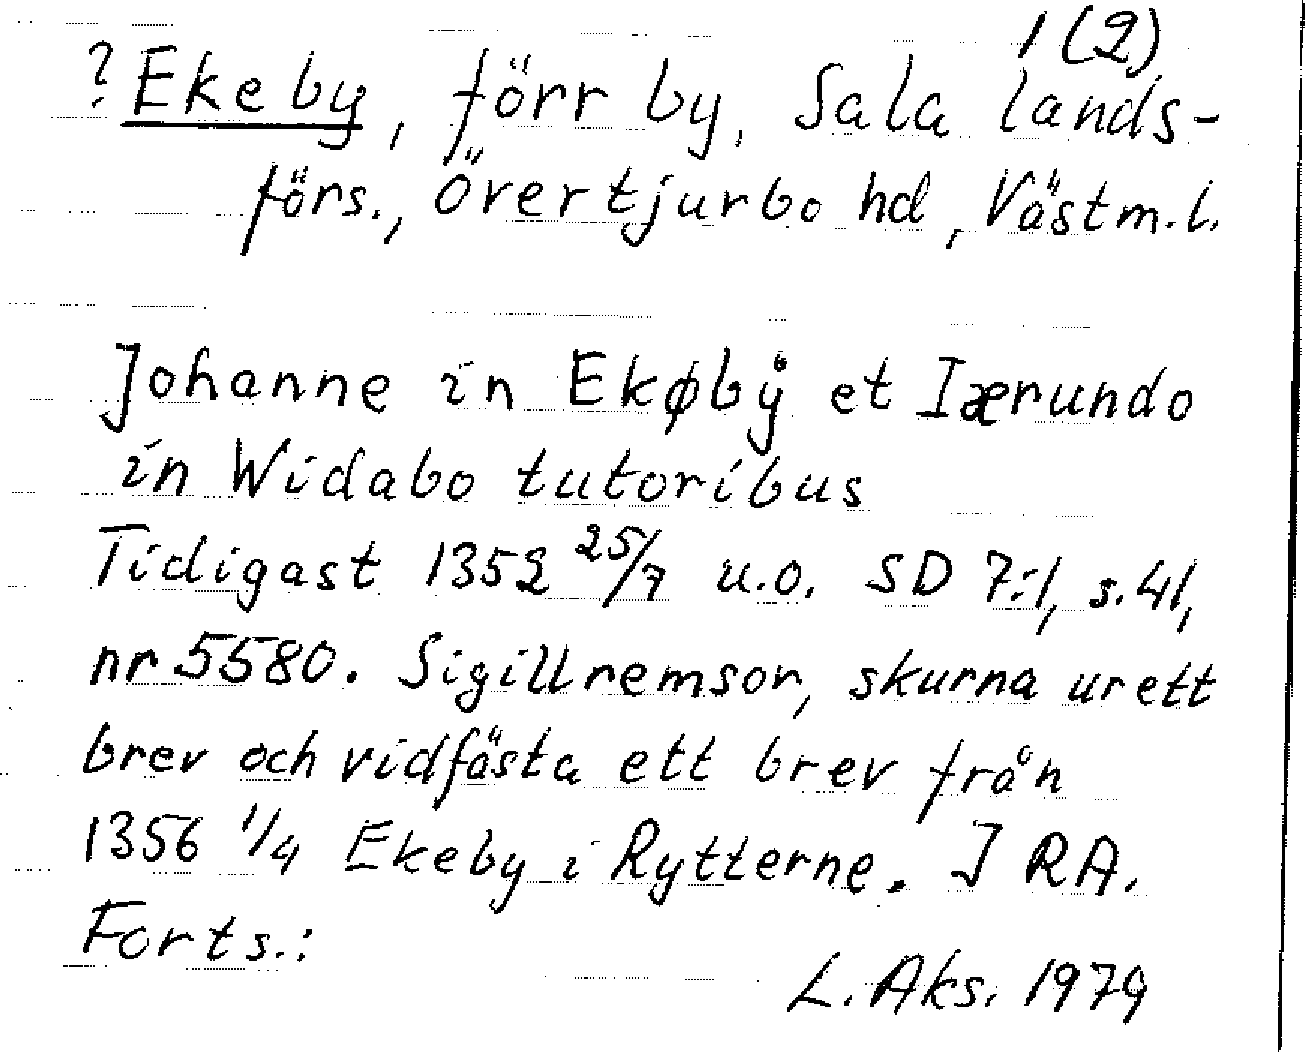 1(2)
?Ekeby, förr by, Sala lands-
förs., Övertjurbo hd, Västm.l.
Johanne in Ekøbẙ et Iærundo
in Widabo tutoribus
Tidigast 1352 25/7 u.o. SD 7:1, s.41,
nr 5580. Sigillremsor, skurna ur ett
brev och vidfästa ett brev från
1356 1/4 Ekeby i Rytterne. I RA.
Forts.:
L. Aks. 1979